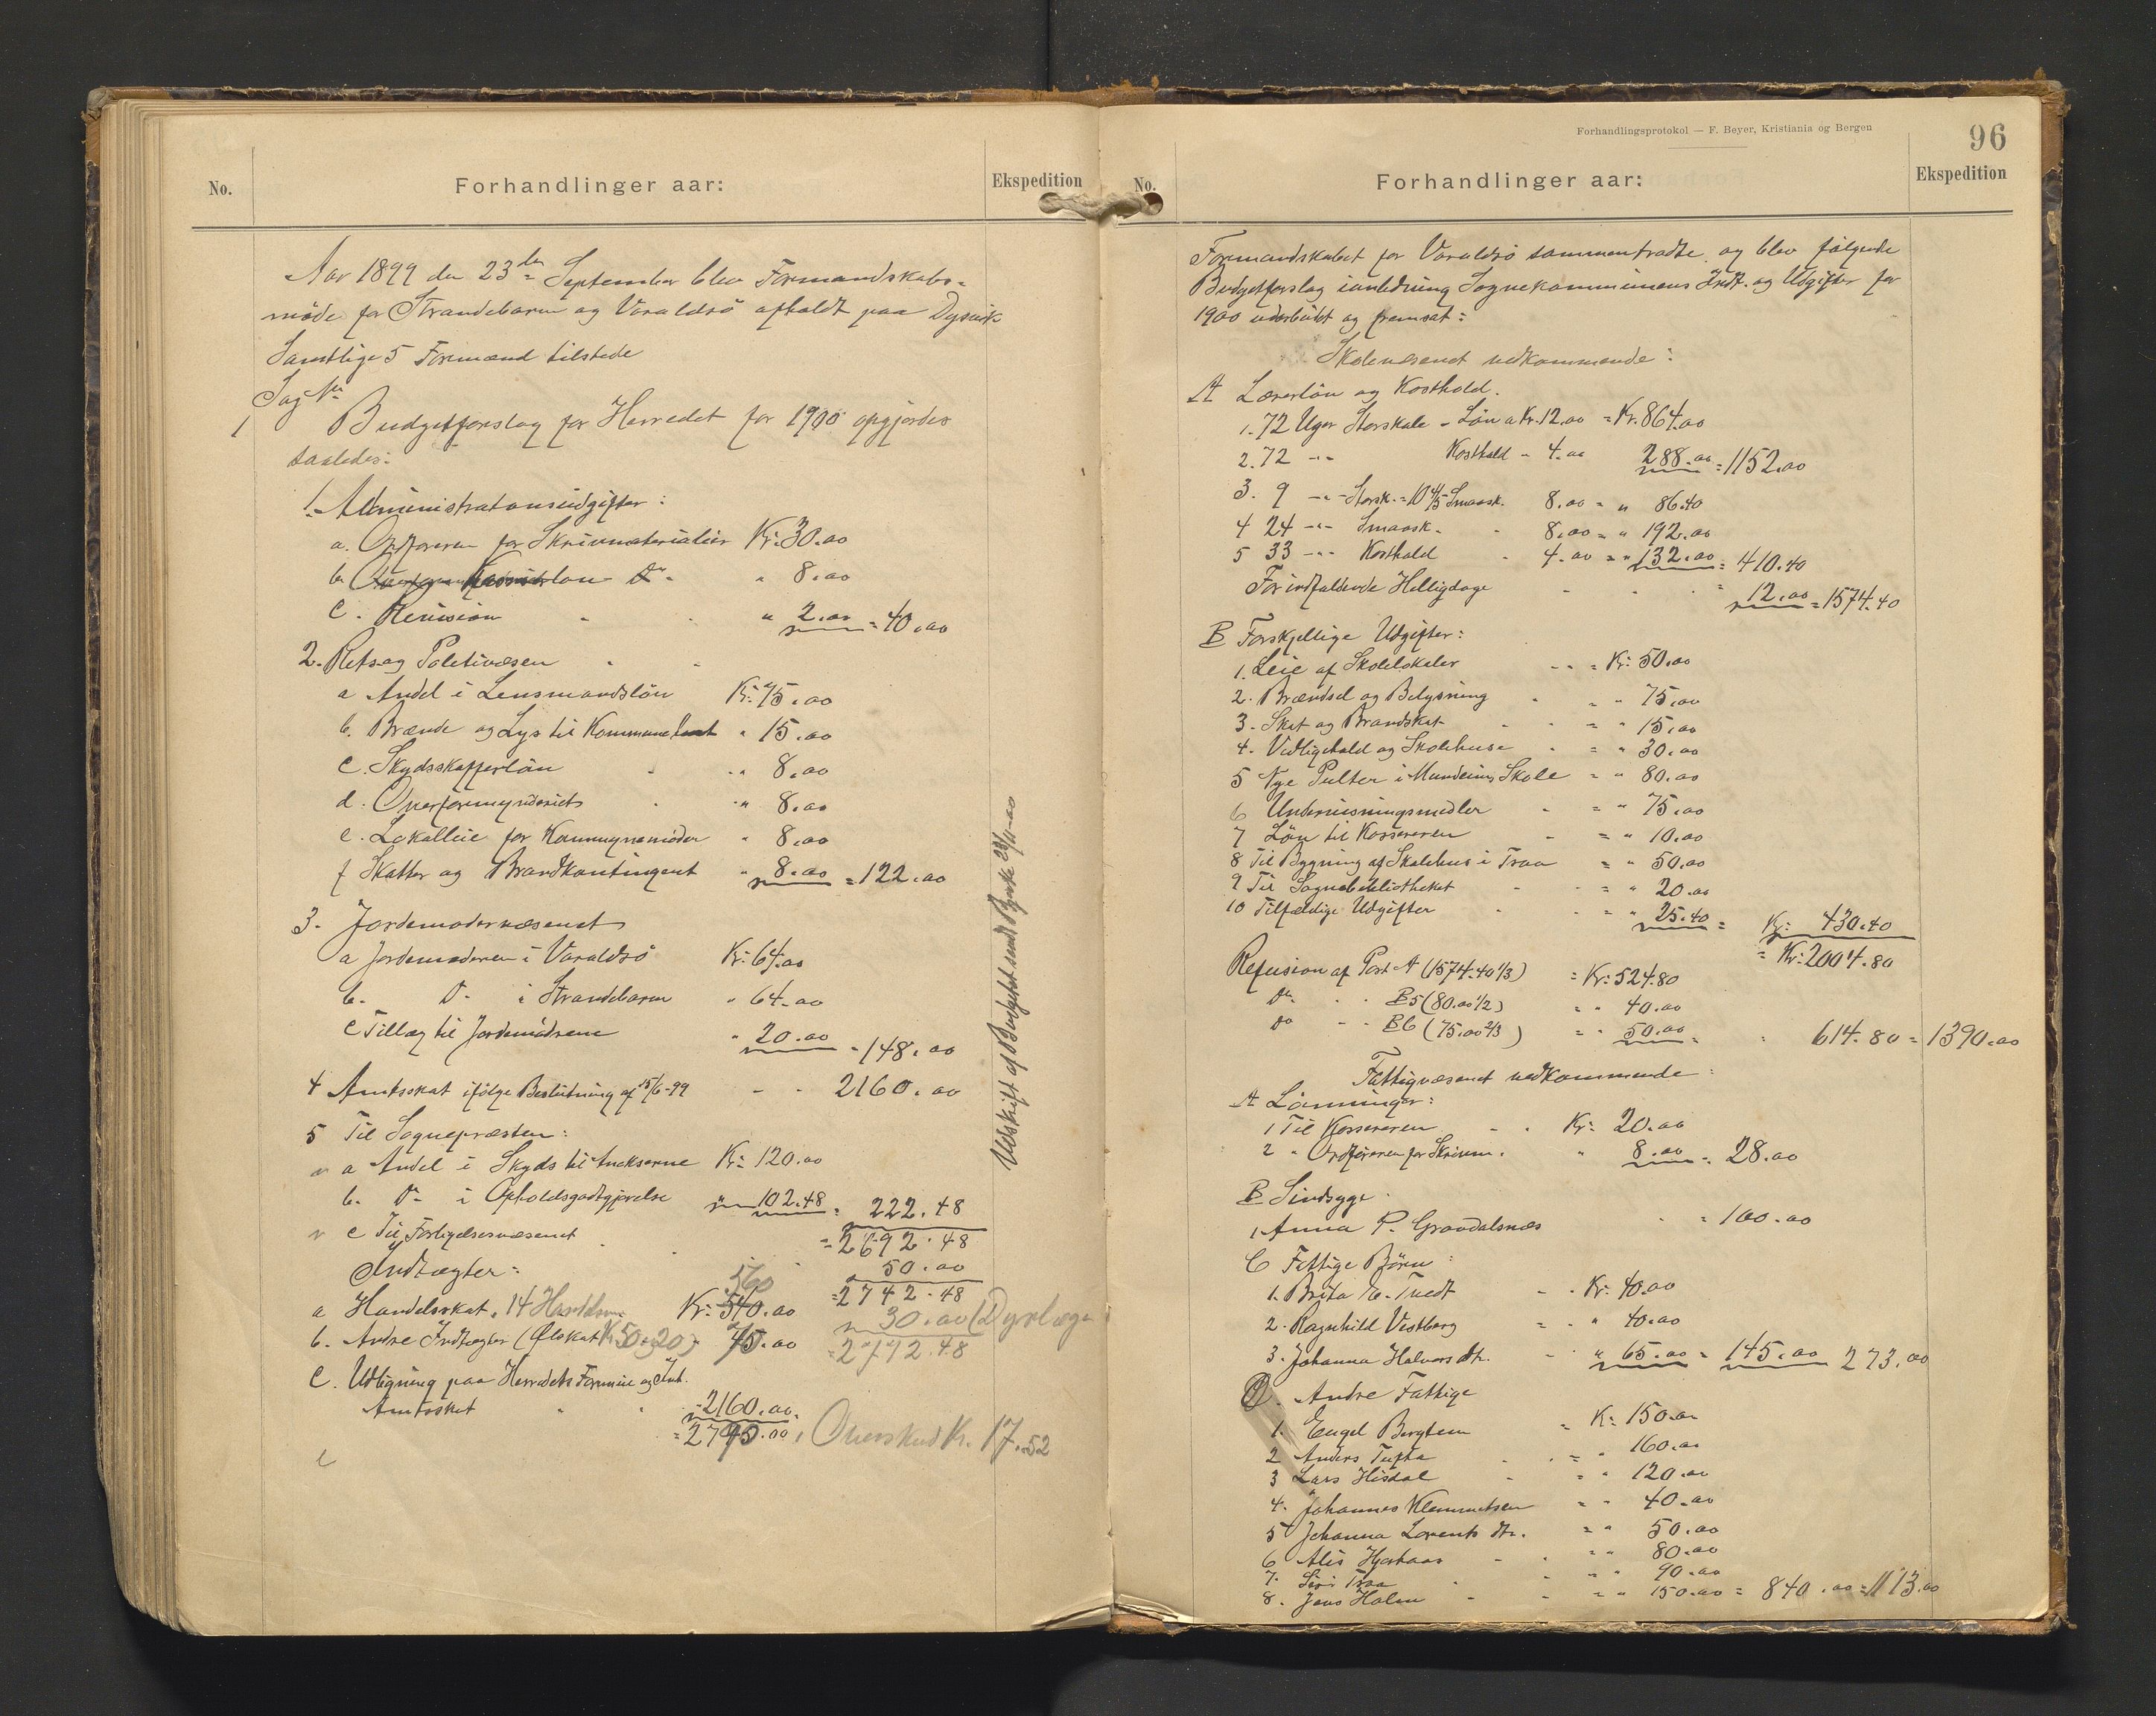 No. Forhandlinger aar: Ekspedition
Aar 1899 den 23de September blev Formandskabs-
møde for Strandebarm og Varaldsö afholdt paa Dysvik
Samtlige 5 Formænd tilstede
Sag No
1 Budgetforslag for Herredet for 1900 opgjordes
saaledes:
1. Administrationsudgifter:
a. Ordføreren for Skrivmaterialier Kr. 30.00
b. D. " 8.00
c. Revision " 2.00 = 40.00
2. Rets og Politivæsen
a Andel i Lensmandslön Kr: 75.00
b. Brænde og Lys til Kommunelocal " 15.00
c. Skydsskafferlön " 8.00
d. Overformynderiet " 8.00
e. Lokalleie for Kommunemöder " 8.00
f Skatter og Brandkontingent " 8.00 = 122.00
3. Jordemodervæsenet
a Jordemoderen i Varaldsö Kr: 64.00
b. D. i Strandebarm " 64.00
c Tillæg til Jordemödrene " 20.00 = 148.00
4 Amtsskat ifölge Beslutning af 15/6-99 2160.00
5 Til Sognepræsten:
a Andel i Skyds til Annekserne Kr: 120.00
b. D. i Opholdsgodtgjørelse 102.48 = 222.48
= 2692.48
c Til Forligelsesvæsenet 50.00
= 2742.48
Indtægter:
560
a Handelsskat. 14 Handelsm Kr: 540.00
30.00 (Dyrlæge
b. Andre Indtægter (Ølskat Kr 50+20) 75.00
= 2772.48
c. Udligning paa Herredets Formue og Indt.
Amtsskat 2160.00
= 2790.00, Overskud Kr. 17.52
Udskrift af Budgettet sendt 23/11-00
Forhandlingsprotokol — F. Beyer, Kristiania og Bergen
96
No. Forhandlinger aar: Ekspedition
Formandskabet for Varaldsö sammentraadte og blev følgende
Budgetforslag ianledning Sognekommunens Indt. og Udgifter for
1900 udarbeidet og fremsat:
Skolevæsenet vedkommende:
A Lærerlön og Kosthold.
1. 72 Uger Storskole - Lön a Kr. 12.00 = Kr. 864.00
2. 72 -"- Kosthold - 4.00 288.00 = 1152.00
3. 9 -"- Storsk. = 10 4/5 Smaask. 8.00 = " 86.40
4 24 -"- Smaask. 8.00 = " 192.00
5 33 -"- Kosthold 4.00 = " 132.00 = 410.40
For indfaldende Helligdage = 12.00 = 1574.40
B Forskjellige Udgifter:
1. Leie af Skolelokaler = Kr: 50.00
2. Brændsel og Belysning " 75.00
3. Skat og Brandskat = " 15.00
4. Vedligehold og Skolehuse = " 30.00
5 Nye Pulter i Mundeims Skole = " 80.00
6 Undervisningsmidler = " 75.00
7 Lön til Kassereren = " 10.00
8 Til Bygning af Skolehus i Traa = " 50.00
9 Til Sognebibliotheket = " 20.00
10 Tilfældige Udgifter = " 25.40 = Kr: 430.40
= Kr: 2004.80
Refusion af Post A (1574.40 1/3) = Kr: 524.80
Do B5 (80.00 1/2) " 40.00
Do B6 (75.00 2/3) = " 50.00 = 614.80 = 1390.00
Fattigvæsenet vedkommende:
A Lönninger:
1 Til Kassereren Kr: 20.00
2 " Ordføreren for Skrivm. " 8.00 = 28.00
B Sindsyge
1. Anna P. Gravdalsnæs = 100.00
C Fattige Börn:
1. Brita E. Tvedt Kr: 40.00
2. Ragnhild Vestberg = " 40.00
3. Johanna Halvorsdtr. " 65.00 = 145.00 273.00
D. Andre Fattige
1. Engel Bergheim = Kr: 150.00
2 Anders Tufta = " 160.00
3 Lars Hisdal = " 120.00
4. Johannes Klemmetsen = " 40.00
5 Johanna Lorents dtr. = " 50.00
6 Alis = " 80.00
7. Siri Traa = " 90.00
8. Jens Holm = " 150.00 = 840.00 = 1113.00